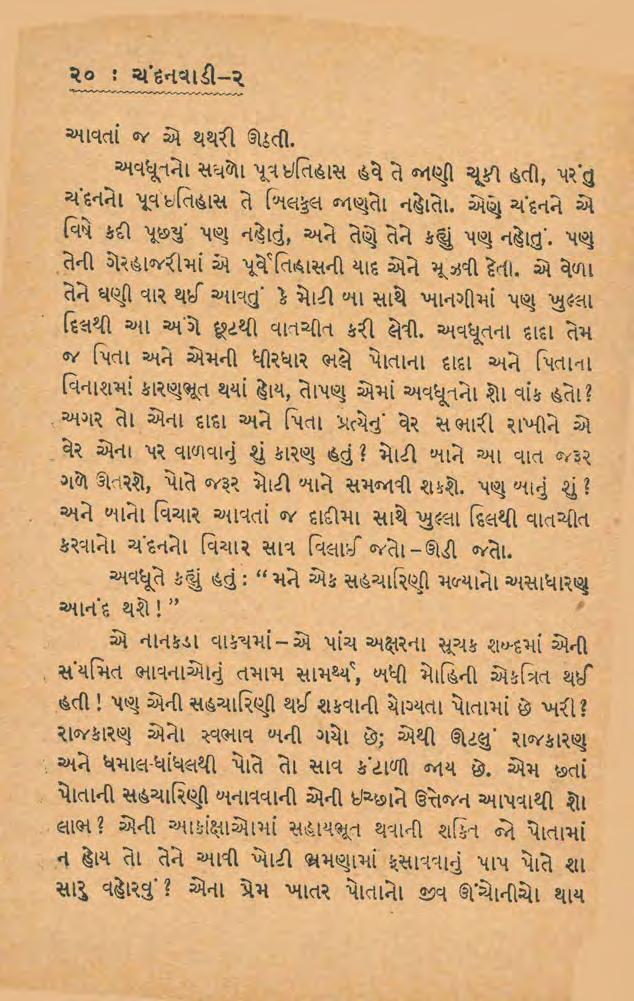 ૨૦ : ચંદનવાડી–૨
આવતાં જ એ થથરી ઊઠતી.
અવધૂતનો સઘળો પૂર્વ ઇતિહાસ હવે તે જાણી ચૂકી હતી, પરંતુ
ચંદનનો પૂર્વ ઇતિહાસ તે બિલકુલ જાણતો નહોતો. એણે ચંદનને એ
વિષે કદી પૂછ્યું પણ નહોતું, અને તેણે તેને કહ્યું પણ નહોતું. પણ
તેની ગેરહાજરીમાં એ પૂર્વેતિહાસની યાદ એને મૂઝવી દેતી. એ વેળા
તેને ઘણી વાર થઈ આવતું કે મોટી બા સાથે ખાનગીમાં પણ ખુલ્લા
દિલથી આ અંગે છૂટથી વાતચીત કરી લેવી. અવધૂતના દાદા તેમ
જ પિતા અને એમની ધીરધાર ભલે પોતાના દાદા અને પિતાના
વિનાશમાં કારણભૂત થયાં હોય, તોપણ એમાં અવધૂતનો શો વાંક હતો?
અગર તો એના દાદા અને પિતા પ્રત્યેનું વેર સંભારી રાખીને એ
વેર એના પર વાળવાનું શું કારણ હતું? મોટી બાને આ વાત જરૂર
ગળે ઊતરશે, પોતે જરૂર મોટી બાને સમજાવી શકશે. પણ બાનું શું?
અને બાનો વિચાર આવતાં જ દાદીમા સાથે ખુલ્લા દિલથી વાતચીત
કરવાનો ચંદનનો વિચાર સાવ વિલાઈ જતો – ઊડી જતો.
અવધૂતે કહ્યું હતું : “મને એક સહચારિણી મળ્યાનો અસાધારણ
આનંદ થશે!”
એ નાનકડા વાક્યમાં – એ પાંચ અક્ષરના સૂચક શબ્દમાં એની
સંયમિત ભાવનાઓનું તમામ સામર્થ્ય, બધી મોહિની એકત્રિત થઈ
હતી! પણ એની સહચારિણી થઈ શકવાની યોગ્યતા પોતામાં છે ખરી?
રાજકારણ એનો સ્વભાવ બની ગયો છે; એથી ઊટલું રાજકારણ
અને ધમાલ-ધાંધલથી પોતે તો સાવ કંટાળી જાય છે. એમ છતાં
પોતાની સહચારિણી બનાવવાની એની ઇચ્છાને ઉત્તેજન આપવાથી શો
લાભ? એની આકાંક્ષાઓમાં સહાયભૂત થવાની શક્તિ જો પોતામાં
ન હોય તો તેને આવી ખોટી ભ્રમણામાં ફસાવવાનું પાપ પોતે શા
સારુ વહોરવું? એના પ્રેમ ખાતર પોતાનો જીવ ઊંચોનીચો થાય